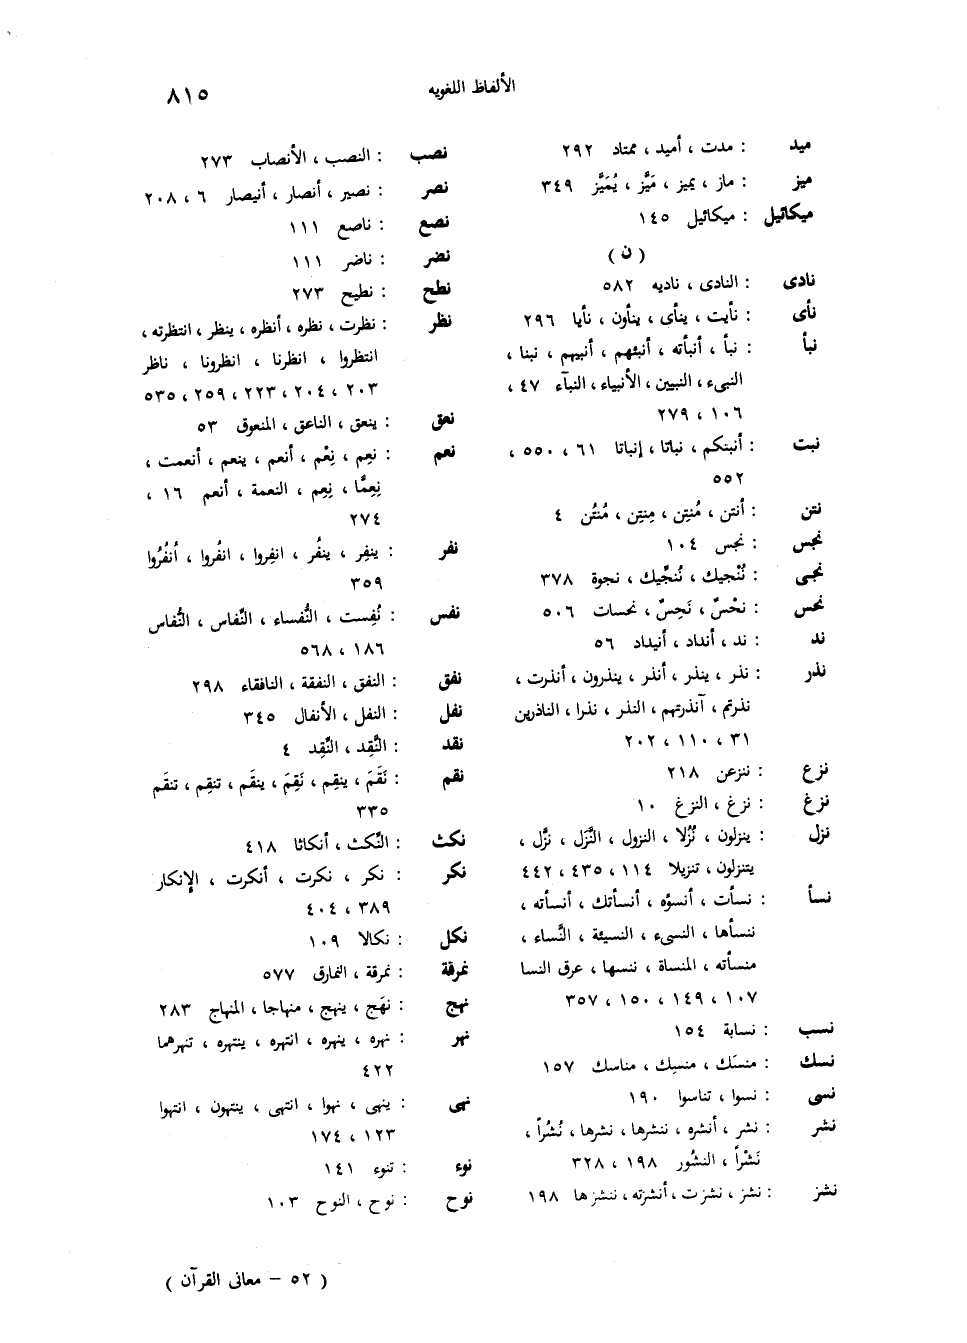 الألفاظ اللغويه
٨١٥
ميد : مدت ، أميد ، ممتاد ٢٩٢
ميز : ماز ، يميز ، مَيَّز ، يُمَيَّز ٣٤٩
ميكائيل : ميكائيل ١٤٥
( ن )
نادى : النادى ، ناديه ٥٨٢
نأى : نأيت ، ينأى ، ينأون ، نأيا ٢٩٦
نبأ : نبأ ، أنبأته ، أنبئهم ، أنبيهم ، نبنا ،
النبىء ، النبيين ، الأنبياء ، النبآء ٤٧ ،
١٠٦ ، ٢٧٩
نبت : أنبتكم ، نباتا ، إنباتا ٦١ ، ٥٥٠ ،
٥٥٢
نتن : أنتن ، مُنتِن ، مِنتِن ، مُنتُن ٤
نجس : نجس ١٠٤
نجى : نُنْجيك ، نُنجِّيك ، نجوة ٣٧٨
نحس : نحْسٌ ، نَحِسٌ ، نحسات ٥٠٦
ند : ند ، أنداد ، أنيداد ٥٦
نذر : نذر ، ينذر ، أنذر ، ينذرون ، أنذرت ،
نذرتم ، آنذرتهم ، النذر ، نذرا ، الناذرين
٣١ ، ١١٠ ، ٢٠٢
نزع : ننزعن ٢١٨
نزغ : نزغ ، النزغ ١٠
نزل : ينزلون ، نُزُلا ، النزول ، النَّزَل ، نزَّل ،
يتنزلون ، تنزيلا ١١٤ ، ٤٣٥ ، ٤٤٢
نسأ : نسأت ، أنسؤه ، أنسأتك ، أنسأته ،
ننسأها ، النسىء ، النسيئة ، النَّساء ،
منسأته ، المنساة ، ننسها ، عرق النسا
١٠٧ ، ١٤٩ ، ١٥٠ ، ٣٥٧
نسب : نسابة ١٥٤
نسك : منسَك ، منسِك ، مناسك ١٥٧
نسى : نسوا ، تناسوا ١٩٠
نشر : نشر ، أنشره ، ننشرها ، نشرها ، نُشُراً ،
نَشْراً ، النشُور ١٩٨ ، ٣٢٨
نشز : نشز ، نشزت ، أنشزته ، ننشزها ١٩٨
نصب : النصب ، الأنصاب ٢٧٣
نصر : نصير ، أنصار ، أنيصار ٦ ، ٢٠٨
نصع : ناصع ١١١
نضر : ناضر ١١١
نطح : نطيح ٢٧٣
نظر : نظرت ، نظره ، أنظره ، ينظر ، انتظرته ،
انتظروا ، انظرنا ، انظرونا ، ناظر
٢٠٣ ، ٢٠٤ ، ٢٢٣ ، ٢٥٩ ، ٥٣٥
نعق : ينعق ، الناعق ، المنعوق ٥٣
نعم : نعِم ، نِعْم ، أنعم ، ينعم ، أنعمت ،
نِعِمَّا ، نِعِم ، النعمة ، أنعم ١٦ ،
٢٧٤
نفر : ينفِر ، ينفُر ، انفِروا ، انفُروا ، أنفُرُوا
٣٥٩
نفس : نُفِست ، النُّفساء ، النِّفاس ، النُّفاس
١٨٦ ، ٥٦٨
نفق : النفق ، النفقة ، النافقاء ٢٩٨
نفل : النفل ، الأنفال ٣٤٥
نقد : النَّقِد ، النِّقِد ٤
نقم : نَقَمَ ، ينقِم ، نَقِمَ ، ينقَم ، تنقِم ، تنقَم
٣٣٥
نكث : النِّكث ، أنكاثا ٤١٨
نكر : نكر ، نكرت ، أنكرت ، الإنكار
٣٨٩ ، ٤٠٤
نكل : نكالا ١٠٩
نمرقة : نمرقة ، النمارق ٥٧٧
نهج : نهَج ، ينهج ، منهاجا ، المنهاج ٢٨٣
نهر : نهره ، ينهره ، انتهره ، ينتهره ، تنهرهما
٤٢٢
نهى : ينهى ، نهوا ، انتهى ، ينتهون ، انتهوا
١٢٣ ، ١٧٤
نوء : تنوء ١٤١
نوح : نوح ، النوح ١٠٣
( ٥٢ – معانى القرآن )